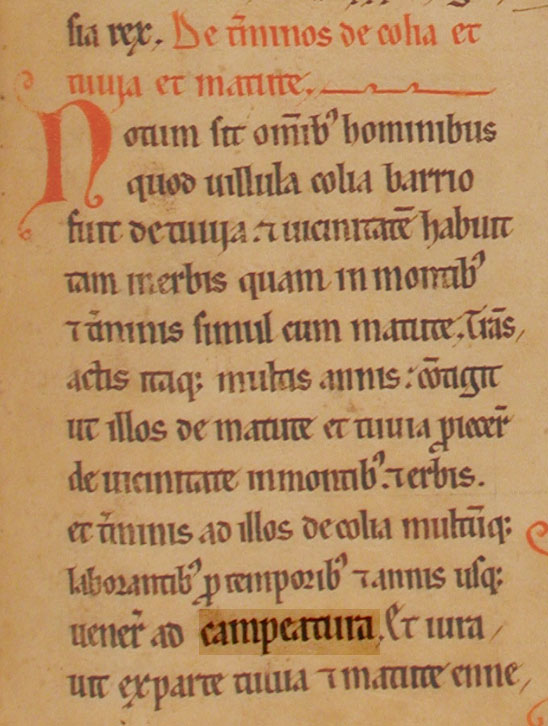 sia rex. De t̄minos de colia et
tuuia et matute.
Notum sit om̄ib⁹ hominibus
quod uillula colia barrio
fuit de tuuija. ⁊ uicinitatē habuit
tam inerbis quam in montib⁹
⁊ t̄minis simul cum matute. Trās,
actis itaq; multis annis: cōtigit
ut illos de matute et tuuia ꝓiecer̄
de uicinitate inmontib⁹. ⁊ erbis.
et t̄minis ad illos de colia multūq;
laborantib⁹ ꝑ temporib⁹ ⁊ annis usq;
uener̄ ad campeatura. Et iura,
uit exparte tuuia ⁊ matute enne,